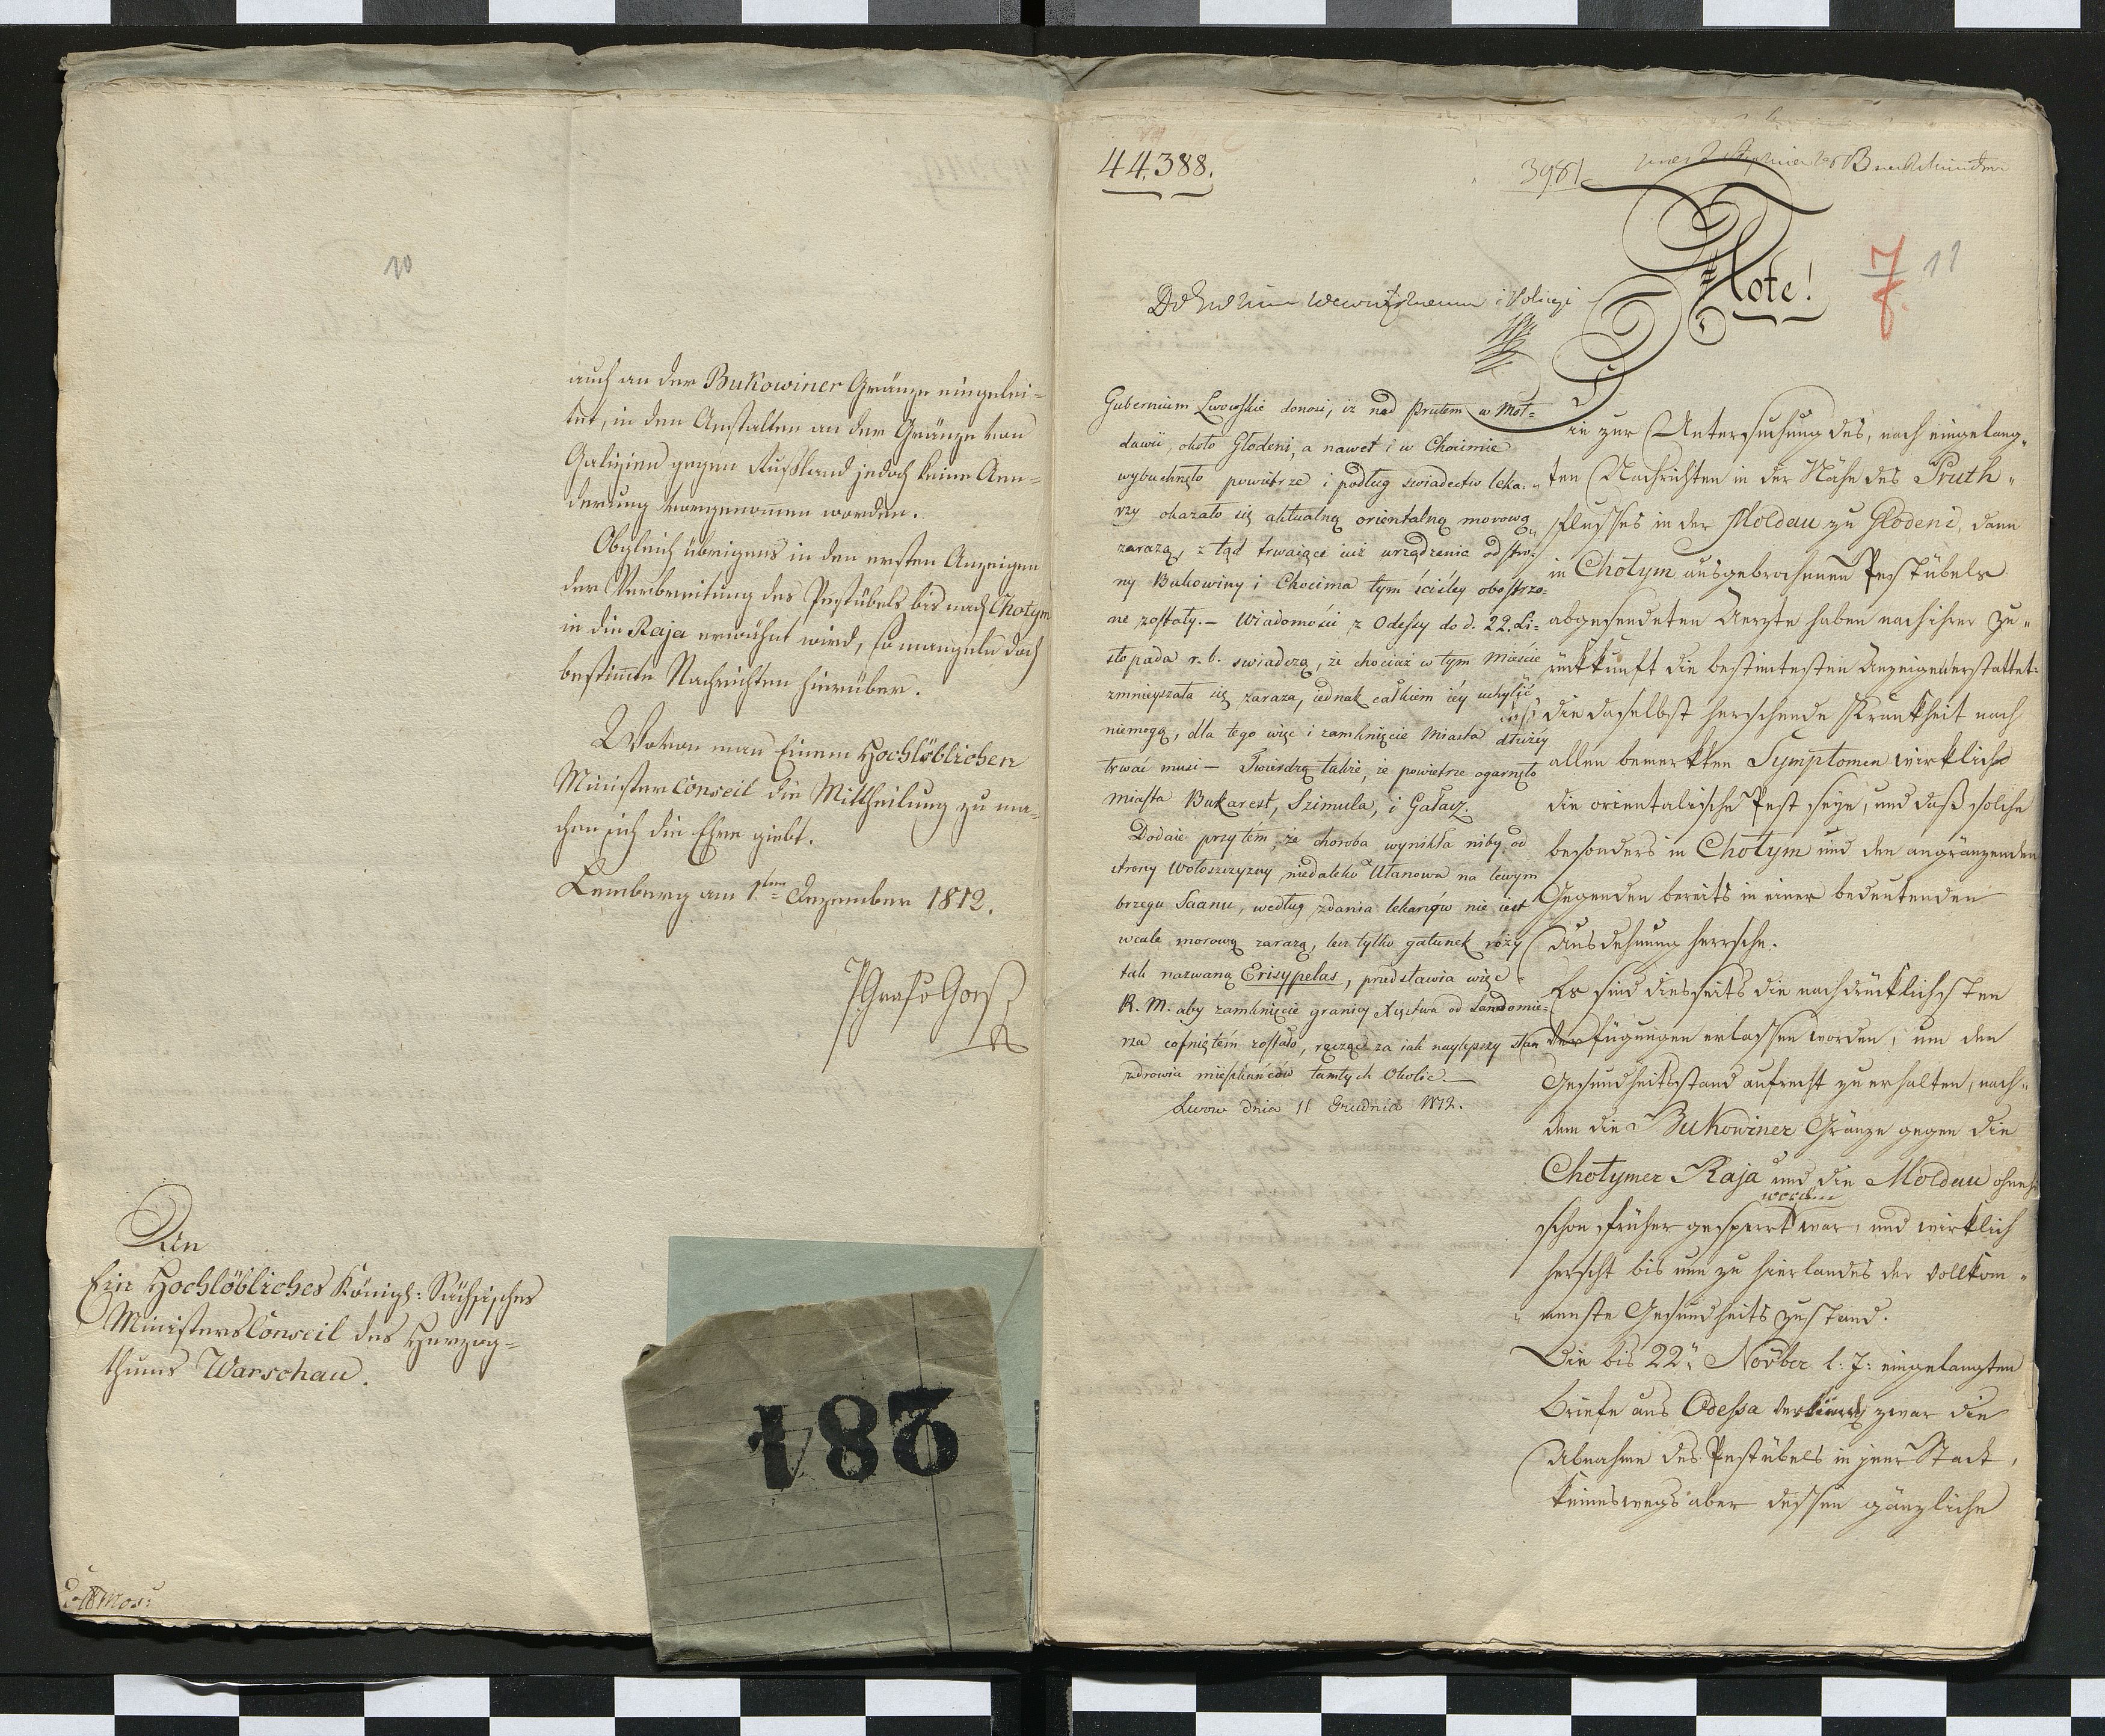 10
auch an der Bukowiner Gränze eingelei=
tet, in den Anstalten an der Gränze von
Galizien gegen Rußland jedoch keine Aen=
derung vorgenommen worden.
Obgleich übrigens in den ersten Anzeigen
der Verbreitung des Pestübels bis nach Chotym
in die Raja erwähnt wird, so mangeln doch
bestimmte Nachrichten hierüber.
Wovon man Einem Hochlöblichen
Minister Conseil die Mittheilung zu ma=
chen sich die Ehre giebt.
Lemberg am 1ten Dezember 1812.
An
Ein Hochlöbliches Königl: Sächsisches
Ministers Conseil des Herzog=
thums Warschau.
281
44,388.
3981
Note!
7
11
Gubernium Lwowskie donosi, iż nad Prutem w Moł=
dawii, około Głodeni, a nawet i w Chocimie
wybuchnęło powietrze i podług świadectw leka=
rzy okazało się aktualną orientalną morową
zarazą, z tąd trwaiące iuż urządzenia od stro=
ny Bukowiny i Chocima tym ściśley obostrzo=
ne zostały. — Wiadomości z Odessy do d. 22. Li=
stopada r. b. świadczą, że chociaż w tym Mieście
zmnieyszała się zaraza, iednak całkiem iey uchylić
niemogą, dla tego więc i zamknięcie Miasta dłużey
trwać musi — Twierdzą także, że powietrze ogarnęło
miasta Bukarest, Szimula, i Gałacz.
Dodaie przytém, że choroba wynikła niby od
strony Wołoszczyzny niedaleko Ulanowa na lewym
brzegu Saanu, według zdania lekarzów nie iest
wcale morową zarazą, lecz tylko gatunek róży
tak nazwaną Erisypelas, przedstawia więc
R. M. aby zamknięcie granicy Xięstwa od Sandomie=
rza cofniętém zostało, ręcząc za iak naylepszy stan
zdrowia mieszkańców tamtych Okolic. —
Lwow dnia 11 Grudnia 1812.
Die zur Untersuchung des, nach eingelang=
ten Nachrichten in der Nähe des Pruth=
flusses in der Moldau zu Glodeni, dann
in Chotym ausgebrochenen Pestübels
abgesendeten Aerzte haben nach ihrer Zu=
rückkunft die bestimtesten Anzeigen erstattet:
die daselbst herschende Krankheit nach
allen bemerkten Symptomen wirklich
die orientalische Pest seye, und daß solche
besonders in Chotym und den angränzenden
Gegenden bereits in einer bedeutenden
Ausdehnung herrsche.
Es sind diesseits die nachdrücklichsten
Verfügungen erlassen worden, um den
Gesundheitsstand aufrecht zu erhalten, nach=
dem die Bukowiner Gränze gegen die
Chotymer Raja und die Moldau ohnehin
worden
schon früher gesperrt war, und wirklich
herscht bis nun zu hierlandes der vollkom=
menste Gesundheitszustand.
Die bis 22n Novber l: J: eingelangten
Briefe aus Odessa zwar die
Abnahme des Pestübels in jener Stadt,
keineswegs aber dessen gänzliche